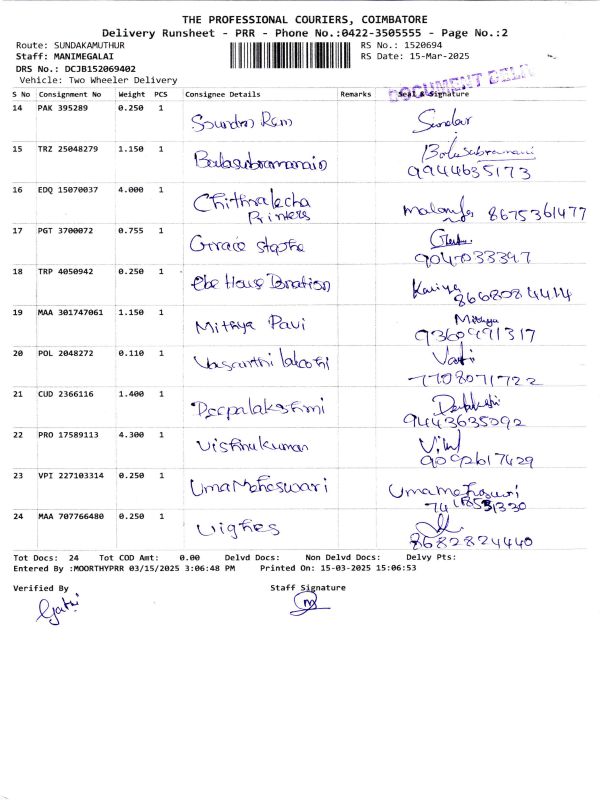 THE PROFESSIONAL COURIERS, COIMBATORE
Delivery Runsheet - PRR - Phone No.:0422-3505555 - Page No.:2
Route: SUNDAKAMUTHUR
RS No.: 1520694
Staff: MANIMEGALAI
RS Date: 15-Mar-2025
DRS No.: DCJB152069402
Vehicle: Two Wheeler Delivery
DOCUMENT
S No Consignment No Weight PCS Consignee Details Remarks Seal & Signature
14 PAK 395289 0.250 1 Soundra Ram Sundar
15 TRZ 25048279 1.150 1 Balasubramaniam Balasubramani
9944635173
16 EDQ 15070037 4.000 1 Chithralekha
Printers 8675361477
17 PGT 3700072 0.755 1 Grace
9047033347
18 TRP 4050942 0.250 1 Ebe House Donation Kaviya
8668084414
19 MAA 301747061 1.150 1 Mithya Pavi Mithya
9360991317
20 POL 2048272 0.110 1 Vasanthi
7708071722
21 CUD 2366116 1.400 1 Deepalakshmi
9443635092
22 PRO 17589113 4.300 1 Vishnukumar
9092617429
23 VPI 227103314 0.250 1 Uma Maheswari Uma Maheswari
24 MAA 707766480 0.250 1 Vighes
8682824440
Tot Docs: 24 Tot COD Amt: 0.00 Delvd Docs: Non Delvd Docs: Delvy Pts:
Entered By :MOORTHYPRR 03/15/2025 3:06:48 PM Printed On: 15-03-2025 15:06:53
Verified By Staff Signature